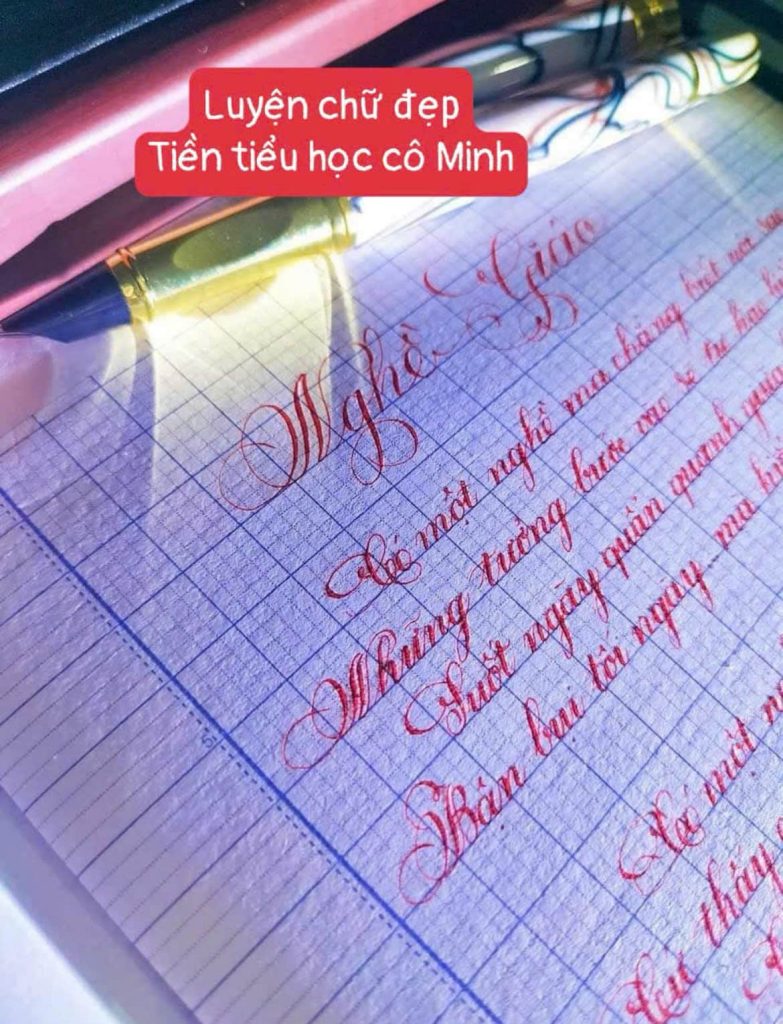 Luyện chữ đẹp
Tiền tiểu học cô Minh
Nghề Giáo
Có một nghề mà chẳng biết
Những tưởng bước vào sẽ tự hào
Suốt ngày quẩn quanh
Thân bụi tối ngày mà
Có một
thầy